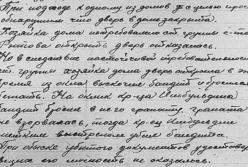 При подходе к одному из домов с целью про
обнаружили что дверь в дом закрыта.
Хозяйка дома на требование ст. группы с-та
открыть дверь отказалась.
Но в следствие настойчивой требовательнос
ст. группы хозяйка дома дверь открыла в он
время из окна выскочил бандит и бросился
бежать. На оклик кр-ца
бандит бросил в него гранату, граната
не взорвалась, тогда кр-ец
метким выстрелом убил бандита.
При обыске убитого документов удостовер
его личность не оказалось.